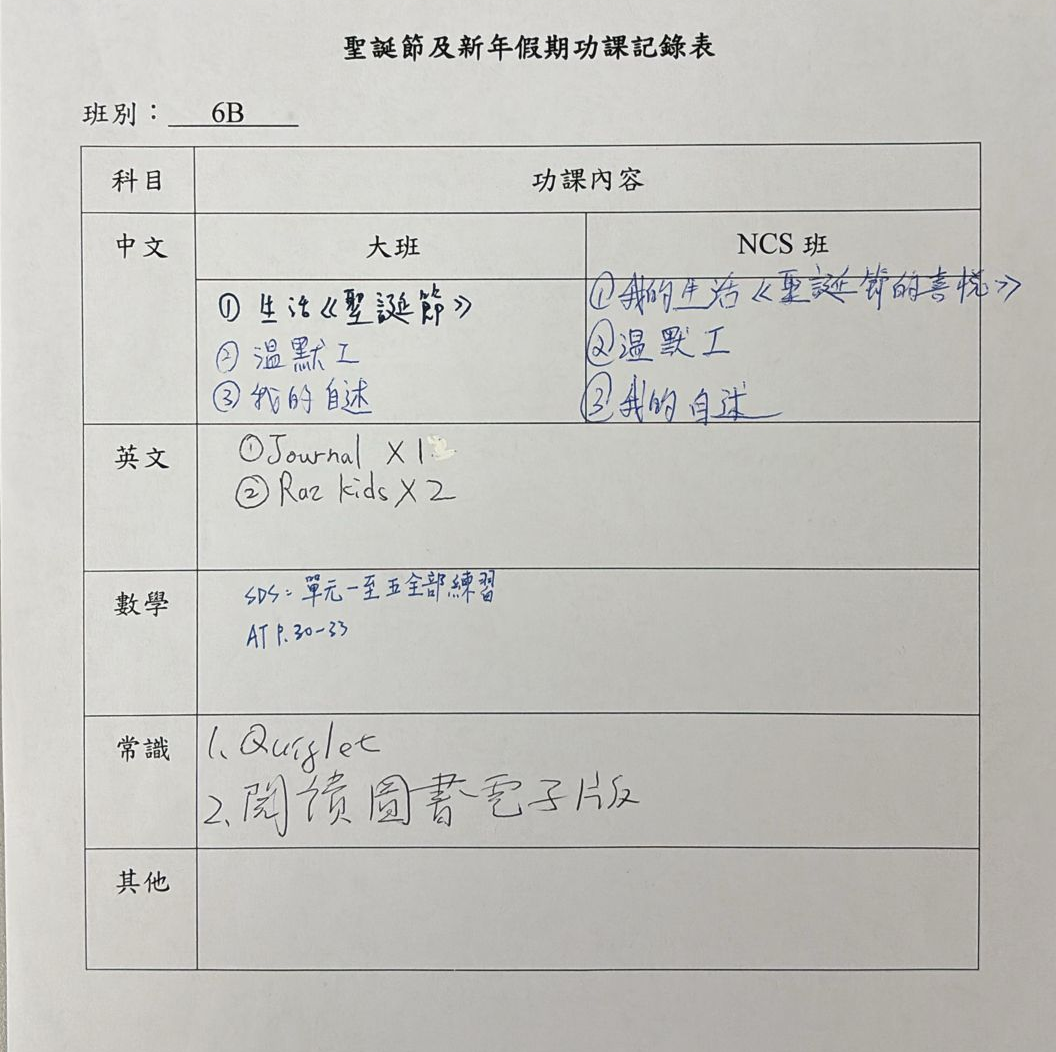 聖誕節及新年假期功課記錄表
班別： 6B
科目 功課內容
中文 大班 NCS 班
① 生活《聖誕節》
② 温默工
③ 我的自述
① 我的生活《聖誕節的喜悅》
② 温默工
③ 我的自述
英文
① Journal X 1
② Raz kids X 2
數學
SDS: 單元一至五全部練習
AT P.30-33
常識
1. Quizlet
2. 閱讀圖書電子版
其他